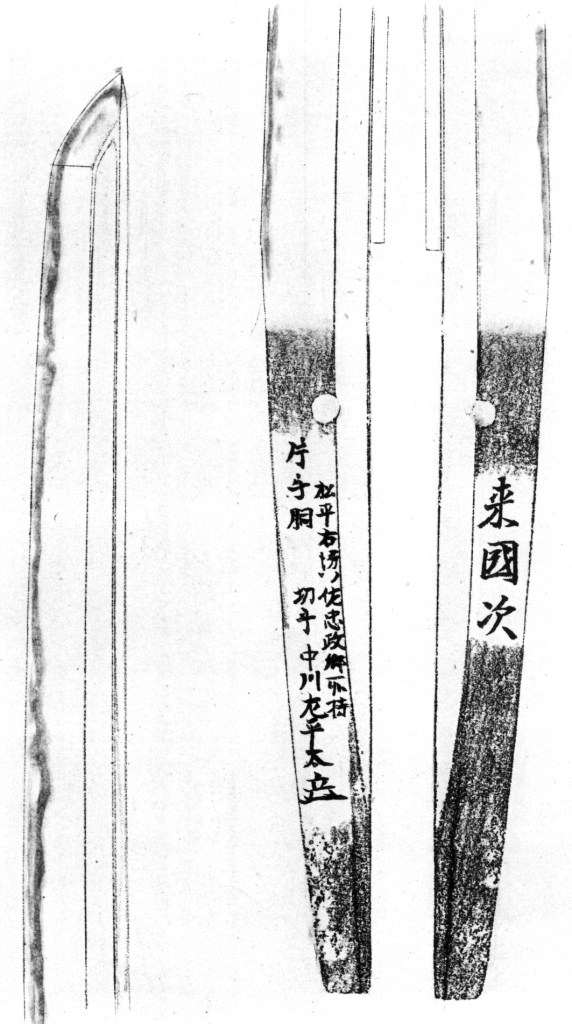 来國次
松平右衛門佐忠政郷所持
片手胴 切手 中川左平太